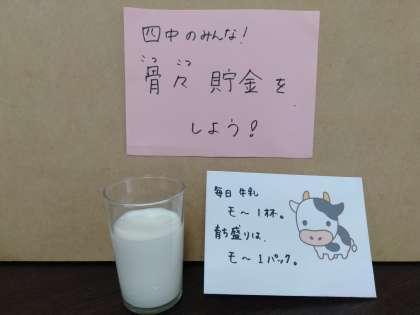 四中のみんな!
こつ こつ
骨々 貯金を
しよう!
毎日 牛乳
モ〜1杯。
育ち盛りは、
モ〜1パック。